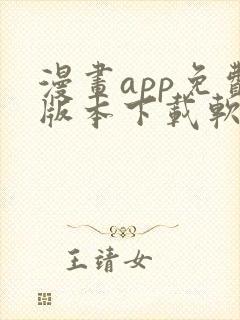 漫畫app免費
版本下載軟
王靖女